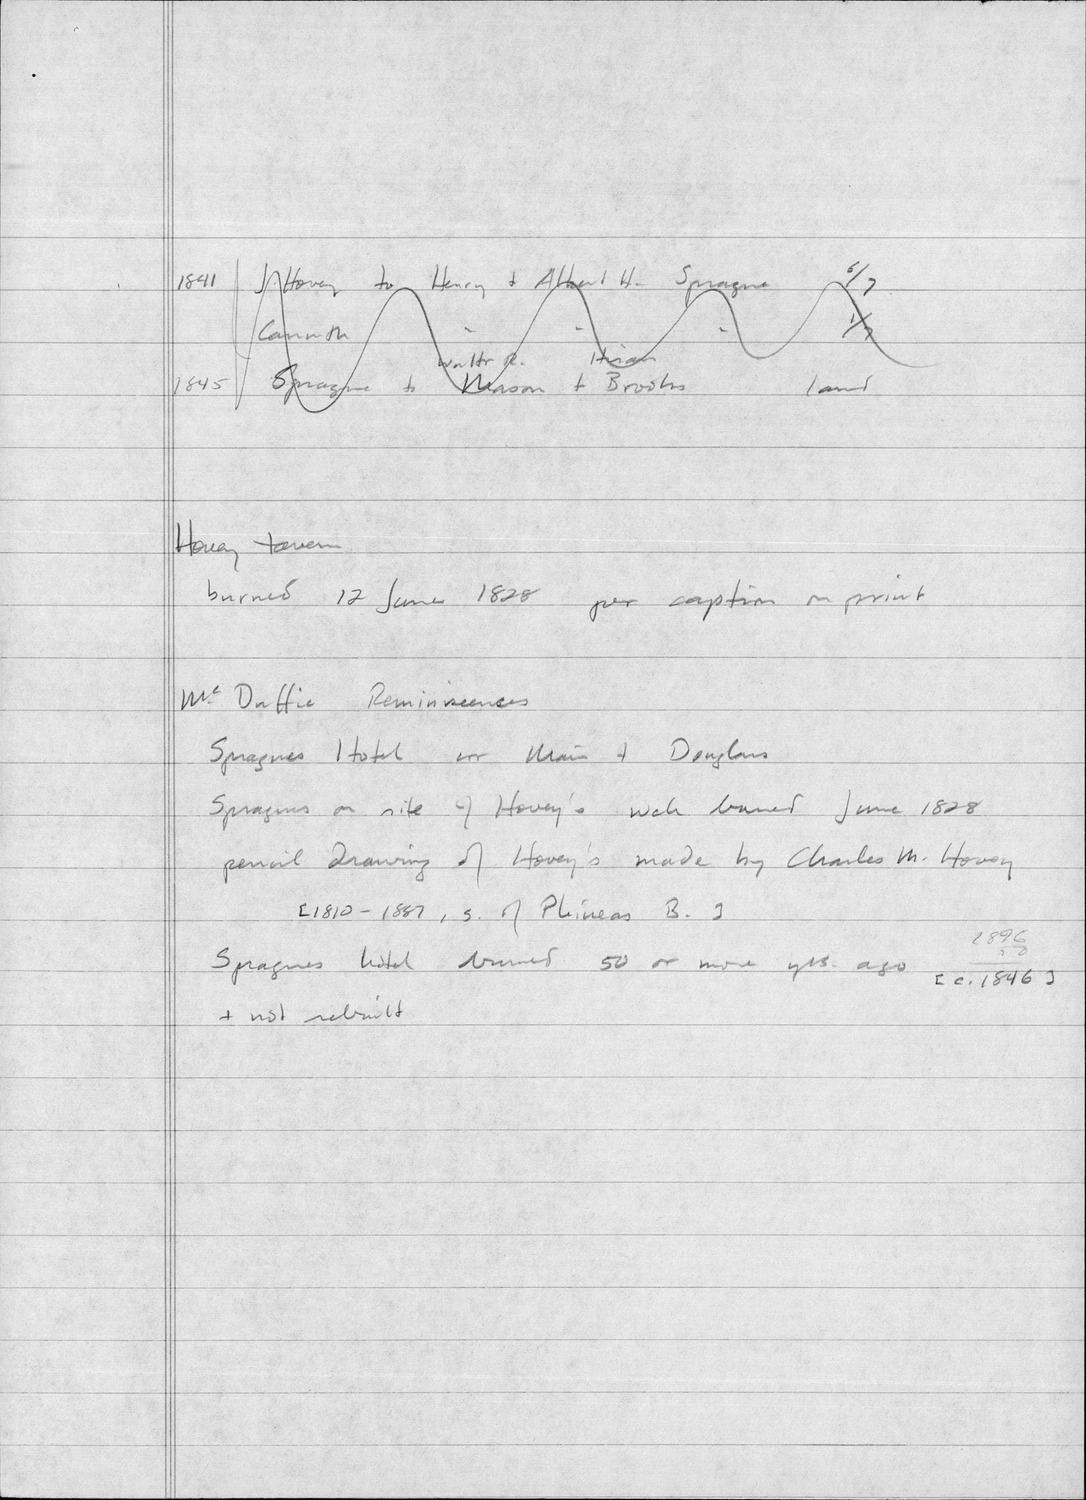 1841 J. Hovey to Henry + Albert H. Sprague 6/7
" " " 1/7
Walter R. Hiram
1845 Sprague to Mason + Brooks land
Hovey tavern
burned 12 June 1828 per caption on print
Mc Duffie Reminiscences
Spragues Hotel cor Main + Douglass
Spragues on site of Hovey's wch burned June 1828
pencil drawing of Hovey's made by Charles M. Hovey
[1810-1887, s. of Phineas B.]
1896
50
Spragues hotel burned 50 or more yrs. ago [c. 1846]
+ not rebuilt